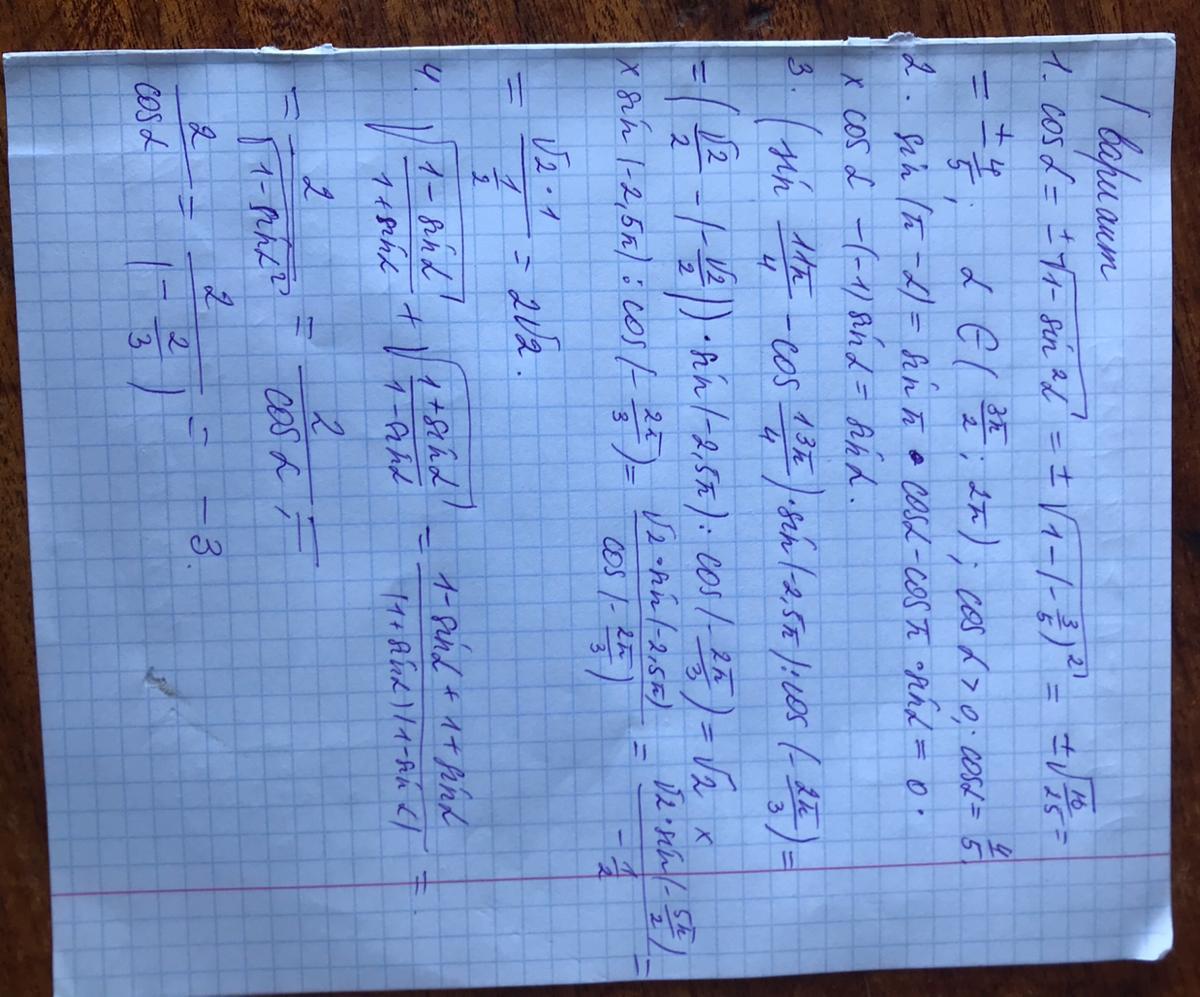 1 вариант
1. cos α = ±√(1 - sin²α) = ±√(1 - (-3/5)²) = ±√(16/25) =
= ±4/5; α ∈ (3π/2; 2π); cos α > 0, cos α = 4/5.
2. sin(π - α) = sin π · cos α - cos π · sin α = 0 ·
× cos α - (-1) sin α = sin α.
3. (sin 11π/4 - cos 13π/4) · sin(-2,5π) : cos(-2π/3) =
= (√2/2 - (-√2/2)) · sin(-2,5π) : cos(-2π/3) = √2 ×
× sin(-2,5π) : cos(-2π/3) = √2 · sin(-2,5π) / cos(-2π/3) = √2 · sin(-5π/2) / -1/2 =
= √2 · 1 / 1/2 = 2√2.
4. √((1 - sin α)/(1 + sin α)) + √((1 + sin α)/(1 - sin α)) = (1 - sin α + 1 + sin α) / (1 + sin α)(1 - sin α) =
= 2/√(1 - sin α²) = 2/cos α; =
2/cos α = 2/(-2/3) = -3.